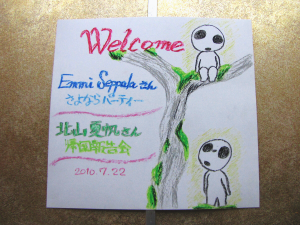 Welcome
Emmi Seppala さん
さよならパーティー
北山夏帆さん
帰国報告会
2010.7.22